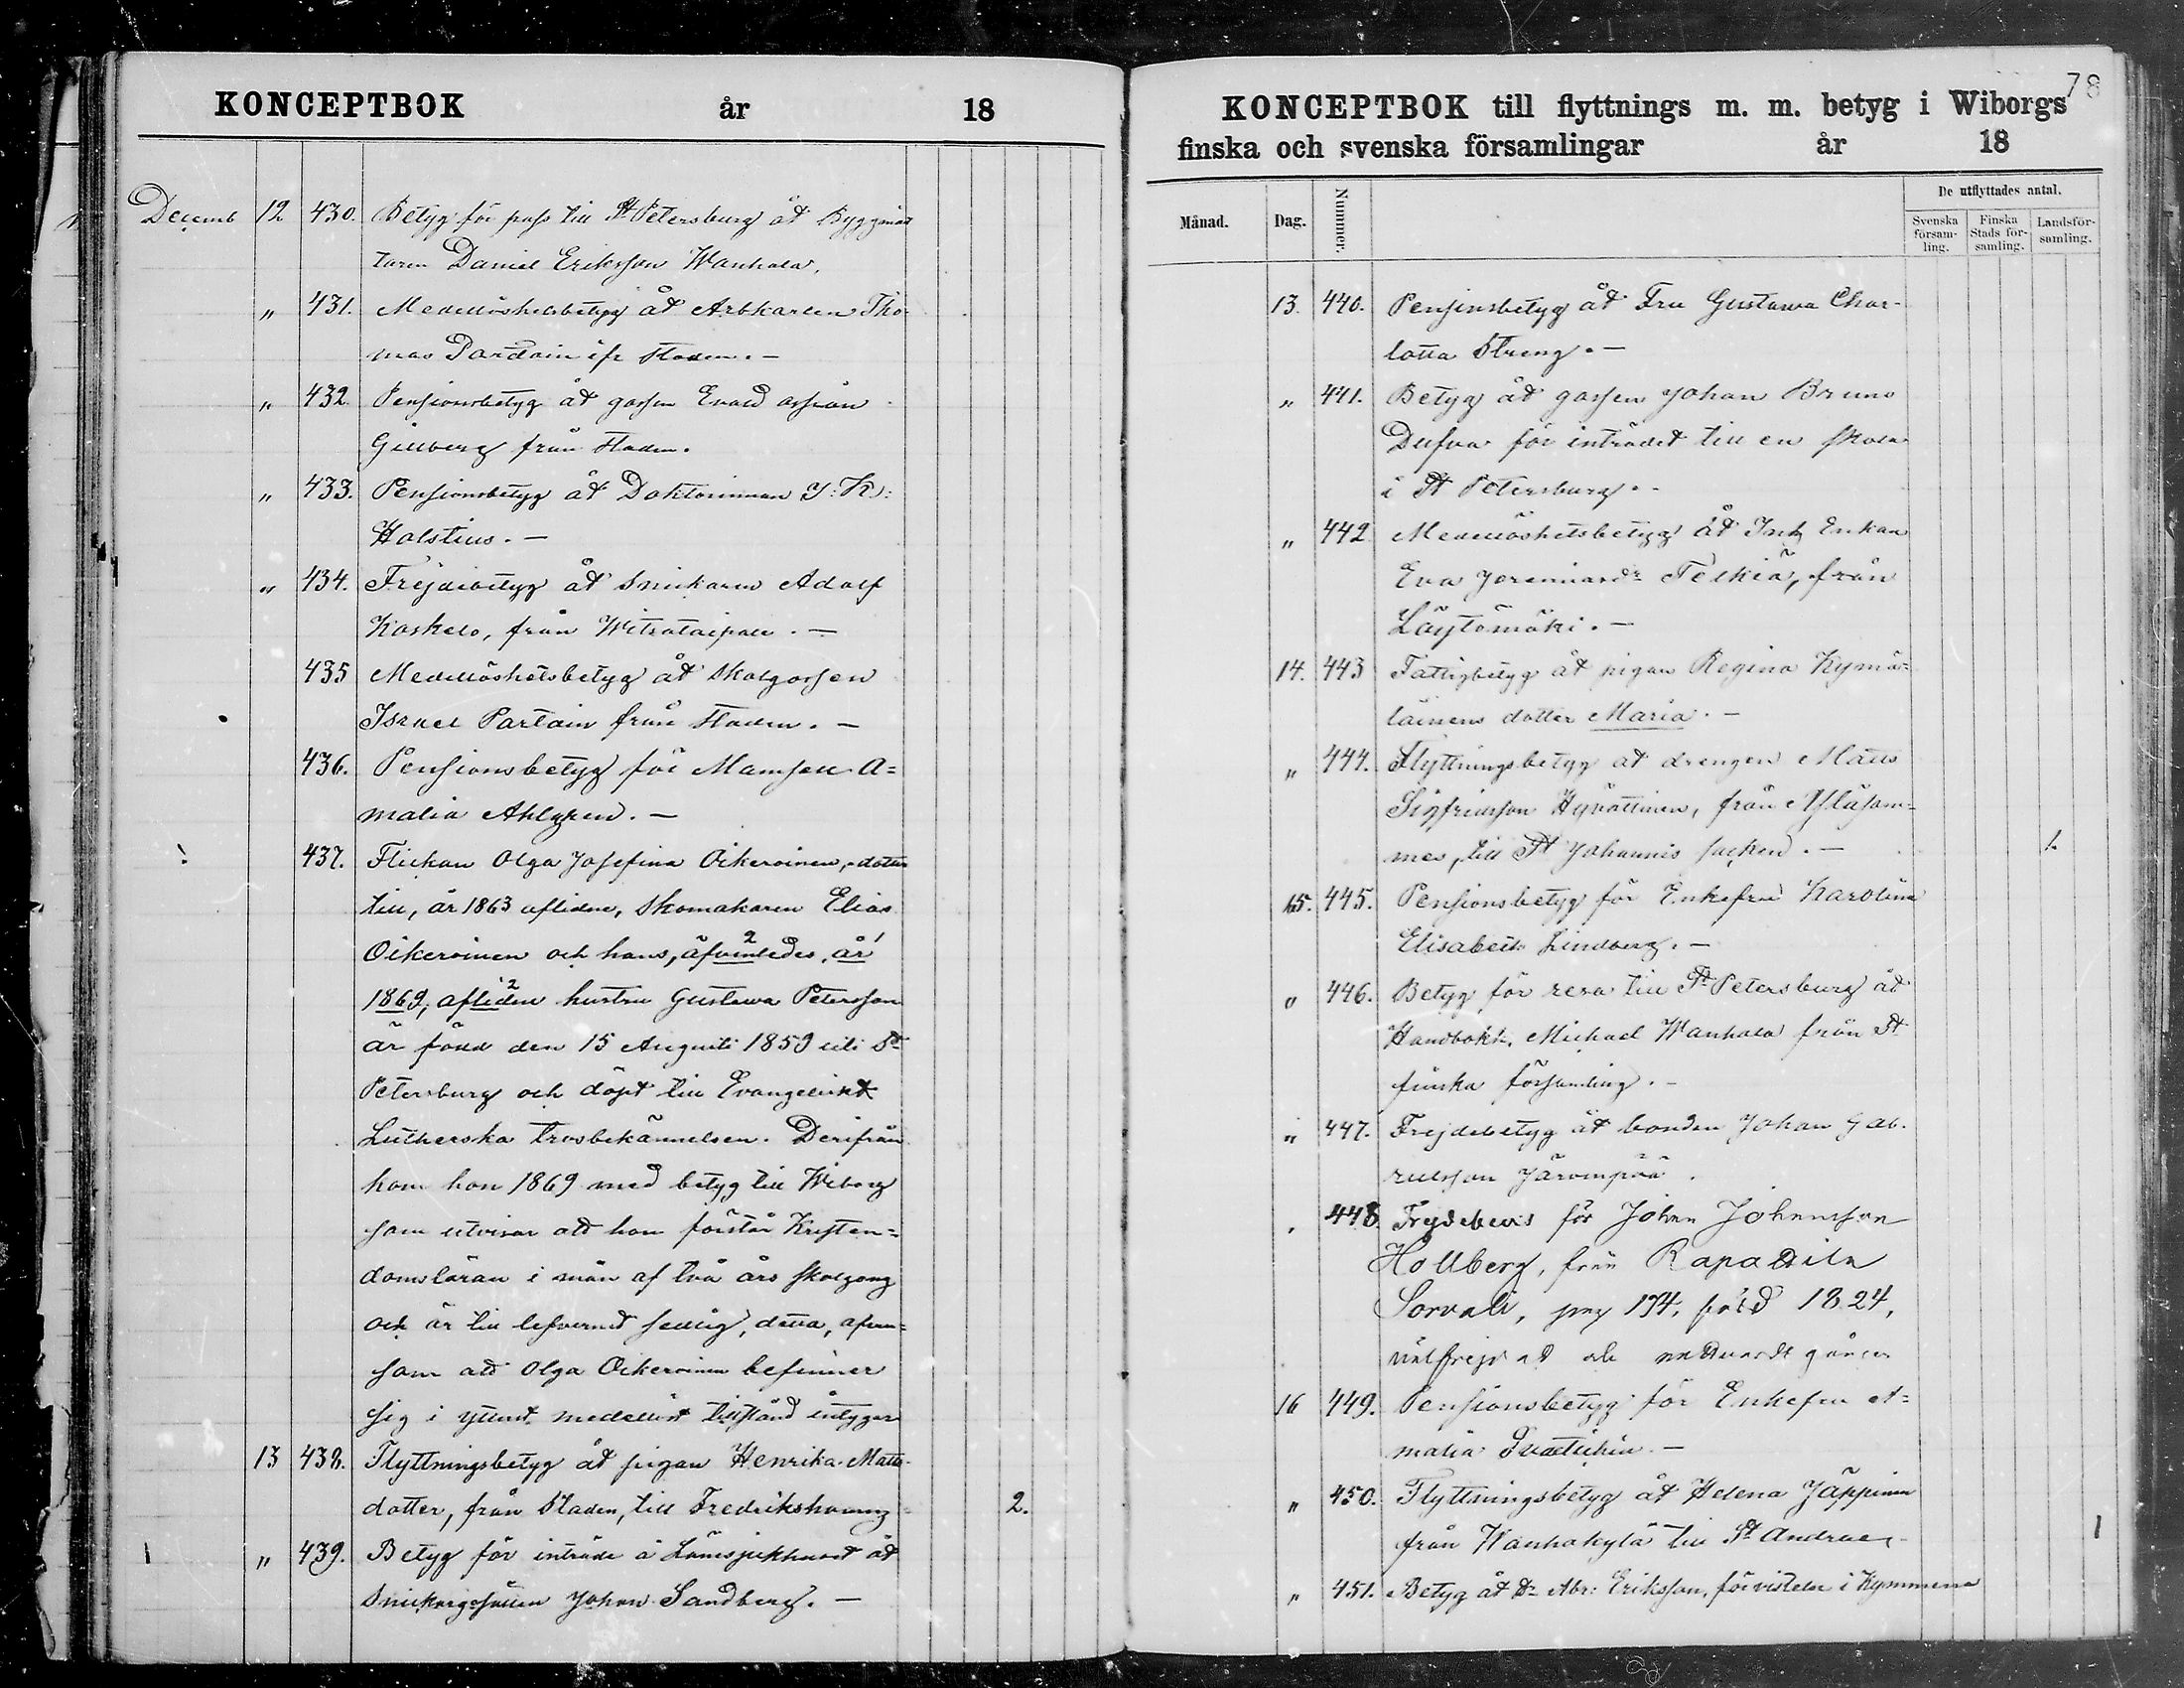 KONCEPTBOK år 18
Decemb 12 430. Betyg för pass till St Petersburg åt Byggmäs
taren Daniel Eriksson Wanhala.
„ 431. Medellöshetsbetyg åt Arbkarlen Tho-
mas Pardain ifr Staden. —
„ 432. Pensionsbetyg åt gossen Evald
Gillberg från Staden.
„ 433. Pensionsbetyg åt Doktorinnan J: K:
Holstius. —
„ 434. Frejdebetyg åt Snickaren Adolf
Koskelo, från Witsataipale. —
435 Medellöshetsbetyg åt Skolgossen
Israel Partain från Staden. —
436. Pensionsbetyg för Mamsell A=
malia Ahlgren. —
! 437. Flickan Olga Josefina Oikeroinen, dotter
till, år 1863 aflidne, Skomakaren Elias
Oikeroinen och hans, äfvenledes, år
1869, afliden hustru Gustava Petersson
är född den 15 Augusti 1859 uti St
Petersburg och döpt till Evangeliskt
Lutherska trosbekännelsen. Derifrån
kom hon 1869 med betyg till Wiborg
som utvisar att hon förstår Kristen=
domsläran i mån af två års skolgang
och är till lefvernet sedlig, detta, äfven=
som att Olga Oikeroinen befinner
sig i ytterst medellöst tillstånd intygar
13 438. Flyttningsbetyg åt pigan Henrika Matts-
dotter, från Staden, till Fredrikshamn 2.
1 „ 439. Betyg för inträde å Länssjukhuset åt
Snickargesällen Johan Sandberg. —
78
KONCEPTBOK till flyttnings m. m. betyg i Wiborgs
finska och svenska församlingar år 18
Månad. Dag. Nummer. De utflyttades antal.
Svenska församling. Finska Stads församling. Landsförsamling.
13. 440. Pensionsbetyg åt Fru Gustawa Char-
lotta Streng. —
„ 441. Betyg åt gossen Johan Bruno
Dufva för inträdet till en skola
i St Petersburg.
„ 442 Medellöshetsbetyg åt Inh Enkan
Eva Jeremiasdr Telkiä, från
Läytömäki. —
14. 443 Fattigbetyg åt pigan Regina Kymä-
läinens dotter Maria. —
„ 444. Flyttningsbetyg åt drengen Matts
Sigfridsson Hyvättinen, från Yläsom-
mee, till St Johannis socken. — 1.
15. 445. Pensionsbetyg för Enkefru Karolina
Elisabeth Lindberg. —
„ 446. Betyg för resa till St Petersburg åt
Handbokh. Michael Wanhala från St
finska församling. —
„ 447. Frejdebetyg åt bonden Johan Gab-
rielsson Järvenpää.
„ 448. Frejdebevis för Johan Johansson
Hollberg, från
Sorvali, pag 194, född 1824,
välfrejdad och nattvardt gången
16 449. Pensionsbetyg för Enkefru A=
malia —
„ 450. Flyttningsbetyg åt Helena Jäppinen
från Wanhakylä till St Andreae. 1
„ 451. Betyg åt Dr Abr: Eriksson, för vistelse i Kymmene